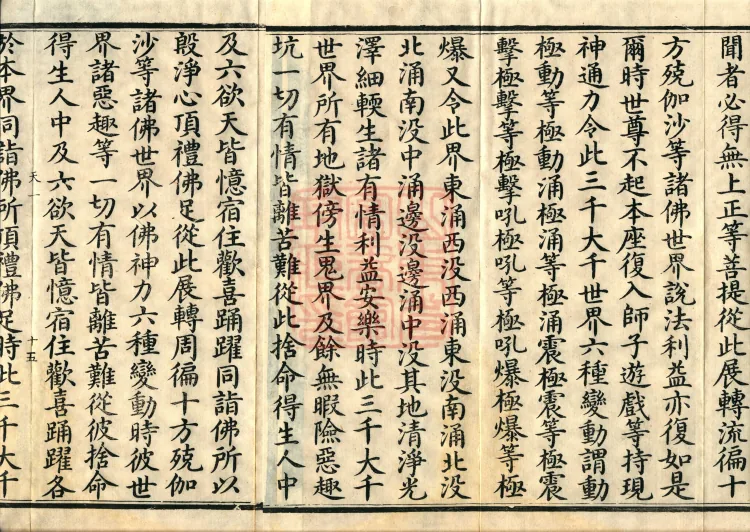 聞者必得無上正等菩提從此展轉流徧十
方殑伽沙等諸佛世界說法利益亦復如是
爾時世尊不起本座復入師子遊戲等持現
神通力令此三千大千世界六種變動謂動
極動等極動涌極涌等極涌震極震等極震
擊極擊等極擊吼極吼等極吼爆極爆等極
爆又令此界東涌西没西涌東没南涌北没
北涌南没中涌邊没邊涌中没其地清淨光
澤細輭生諸有情利益安樂時此三千大千
世界所有地獄傍生鬼界及餘無暇險惡趣
坑一切有情皆離苦難從此捨命得生人中
及六欲天皆憶宿住歡喜踊躍同詣佛所以
殷淨心頂禮佛足從此展轉周徧十方殑伽
沙等諸佛世界以佛神力六種變動時彼世
界諸惡趣等一切有情皆離苦難從彼捨命
得生人中及六欲天皆憶宿住歡喜踊躍各
天一
十五
於本界同詣佛所頂禮佛足時此三千大千